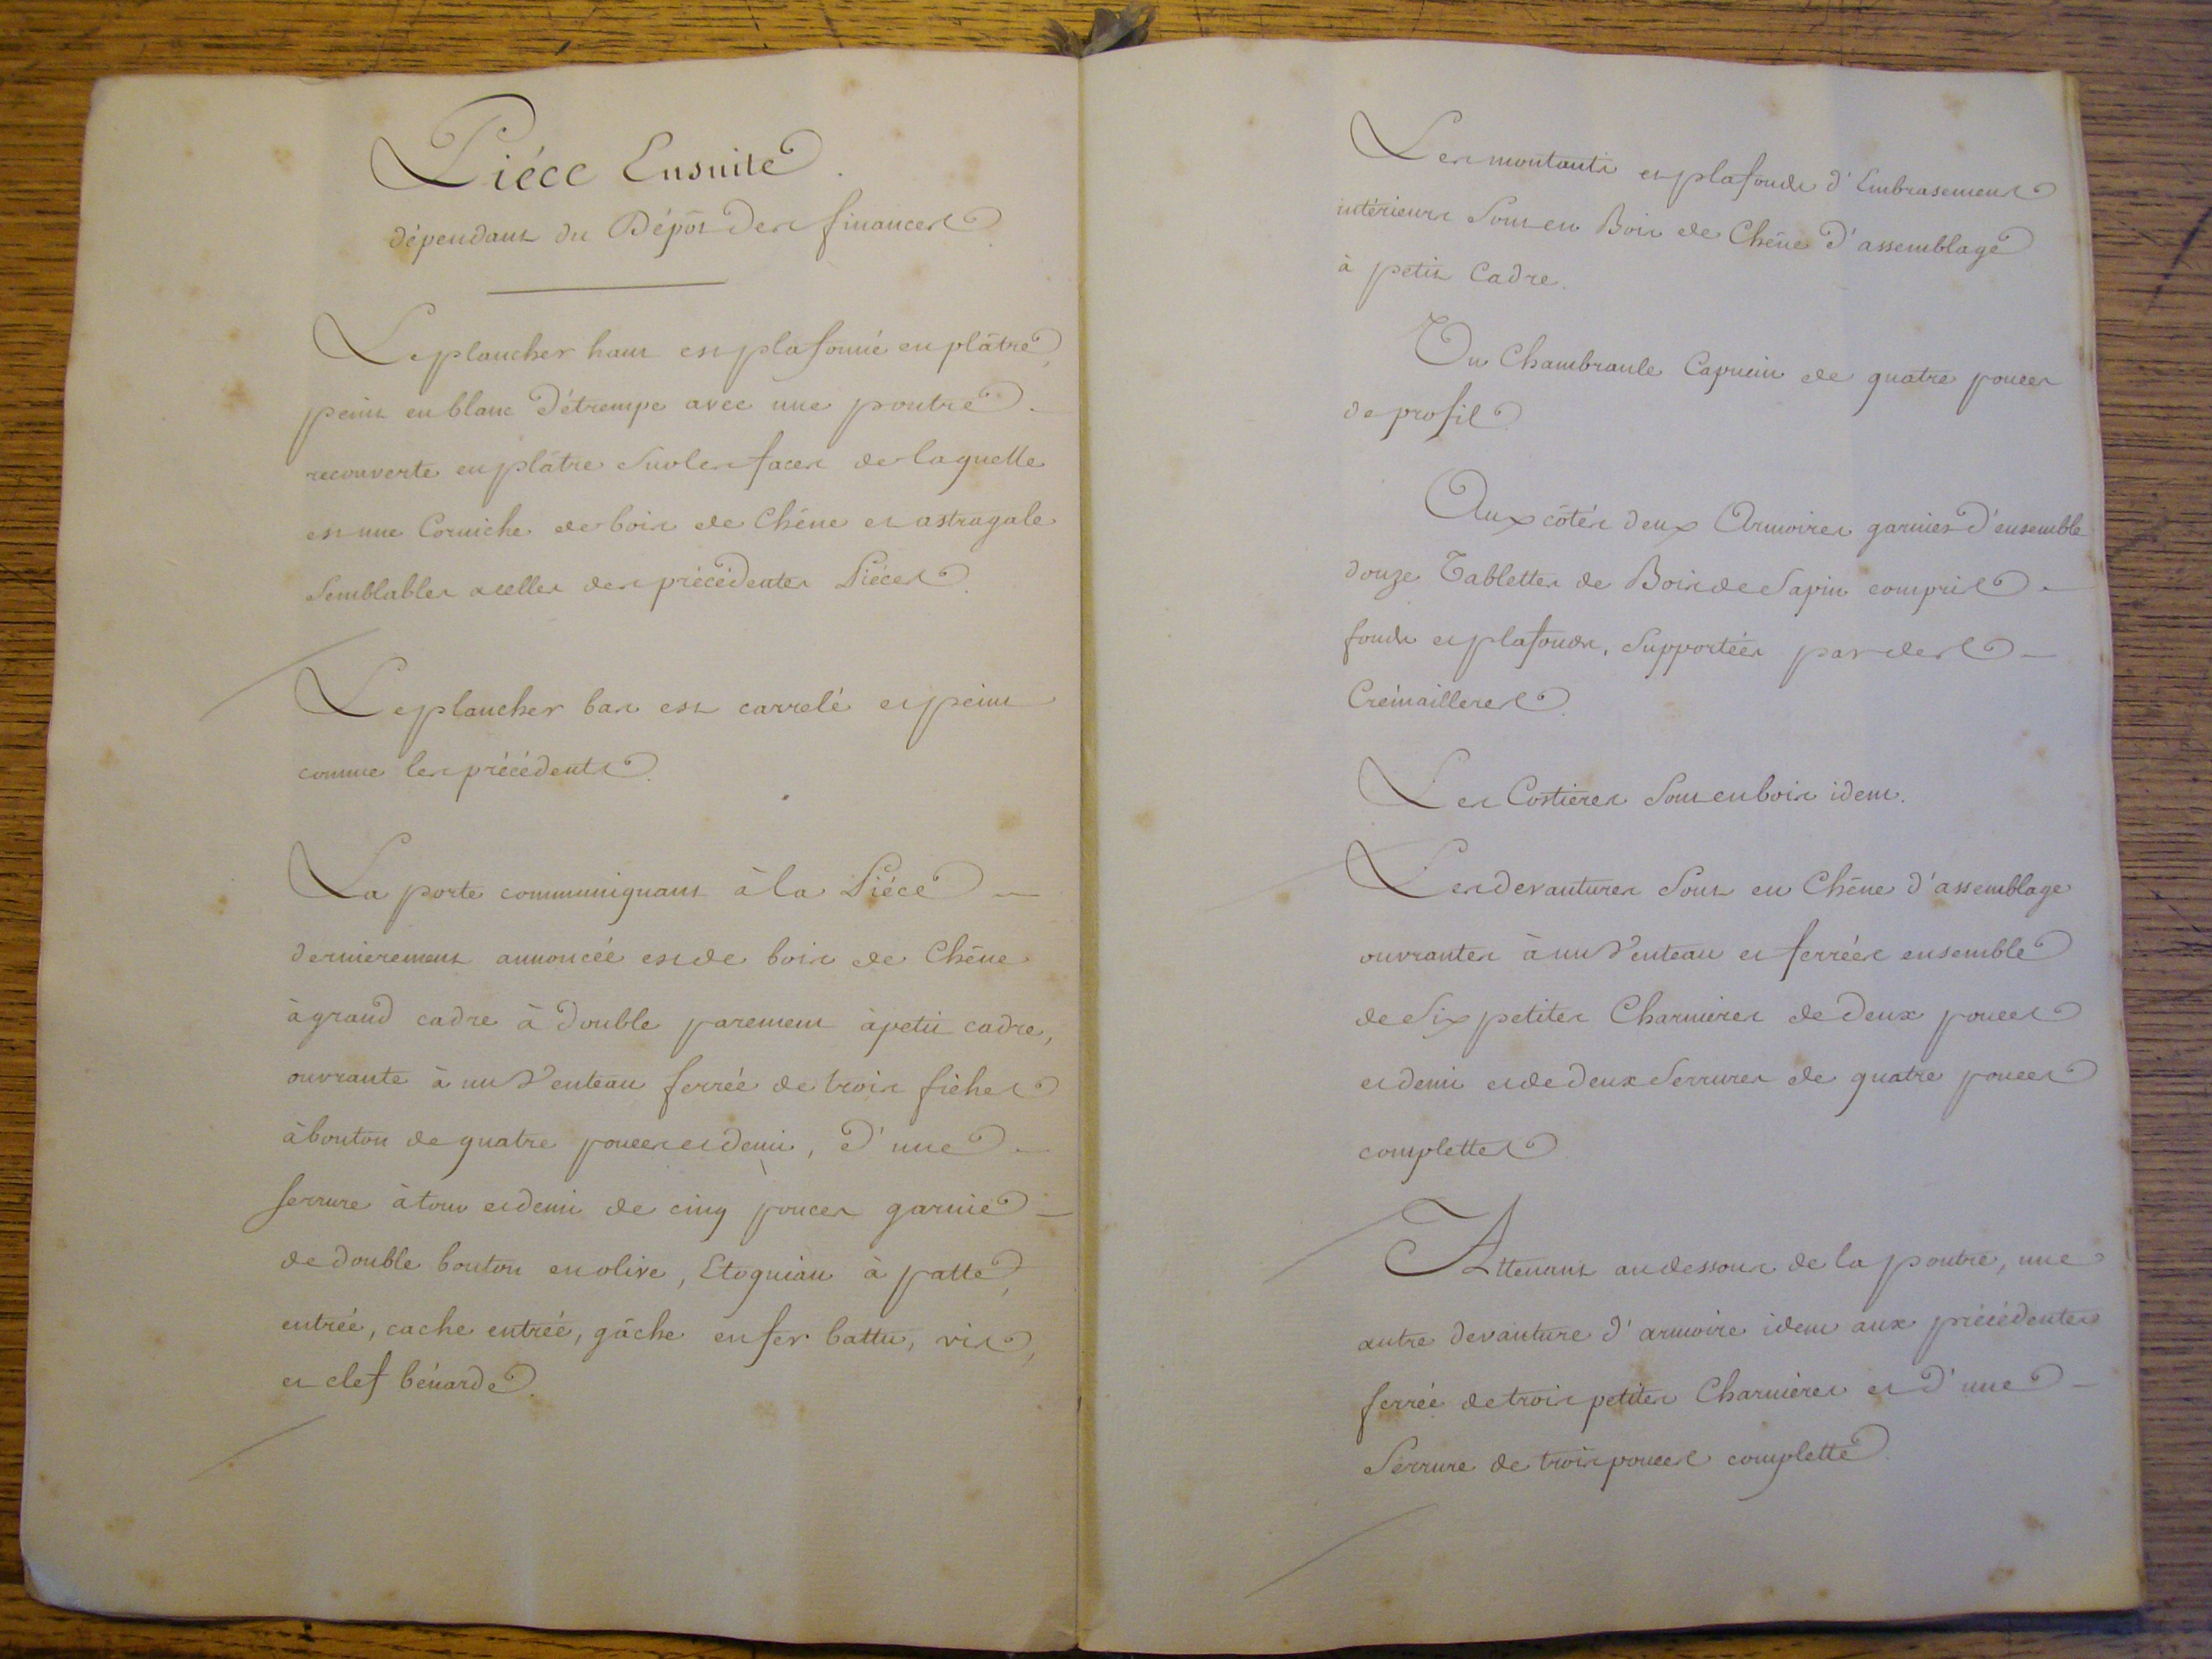 Piéce Ensuite.
dépendant du Dépôt Des finances.
Le plancher haut est plafonné en plâtre,
peint en blanc Détrempe avec une poutre
recouverte en plâtre Sur les faces de laquelle
est une Corniche de bois de Chêne et astragale
Semblables a celles des précédentes Piéces.
Le plancher bas est carrelé et peint
comme les précédents.
La porte communiquant à la Piéce
dernierement annoncée est de bois de Chêne
à grand cadre à Double parement à petit cadre,
ouvrante à un Venteau ferrée de trois fiches
à bouton de quatre pouces et demi, D'une
serrure à tour et demi de cinq pouces garnie
de double bouton en olive, Etoquiau à patte,
entrée, cache entrée, gâche en fer battu, vis,
et clef bénarde.
Les montants et plafonds d'Embrasement
intérieurs Sont en Bois de Chêne D'assemblage
à petit Cadre.
Un Chambranle Capucin de quatre pouces
de profil.
Aux côtés deux Armoires garnies D'ensemble
douze Tablettes de Bois de Sapin compris
fonds et plafonds, Supportées par des
Crémailleres.
Les Costieres Sont en bois idem.
Les devantures Sont en Chêne d'assemblage
ouvrantes à un Venteau et ferrées ensemble
de Six petites Charnieres de Deux pouces
et demi et de deux Serrures de quatre pouces
complettes.
Attenant au dessous de la poutre, une
autre devanture d'armoire idem aux précédentes
ferrée de trois petites Charnieres et D'une
Serrure de trois pouces complette.